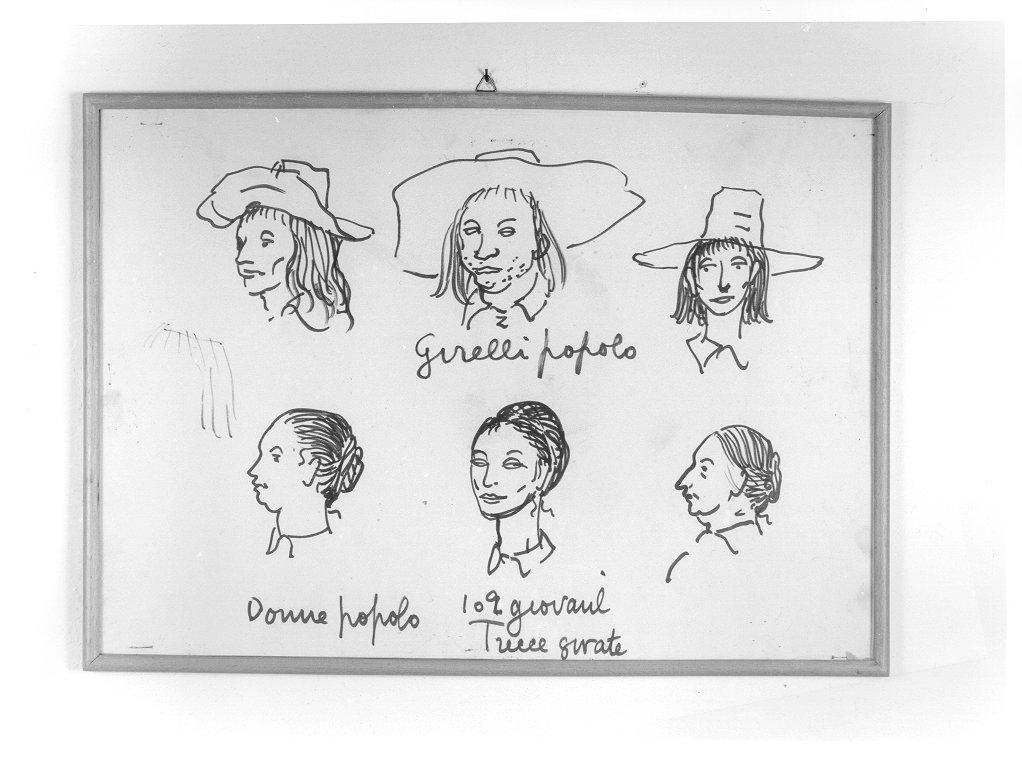 Girelli popolo
Donne popolo
1 o 2 giovani
Trecce girate